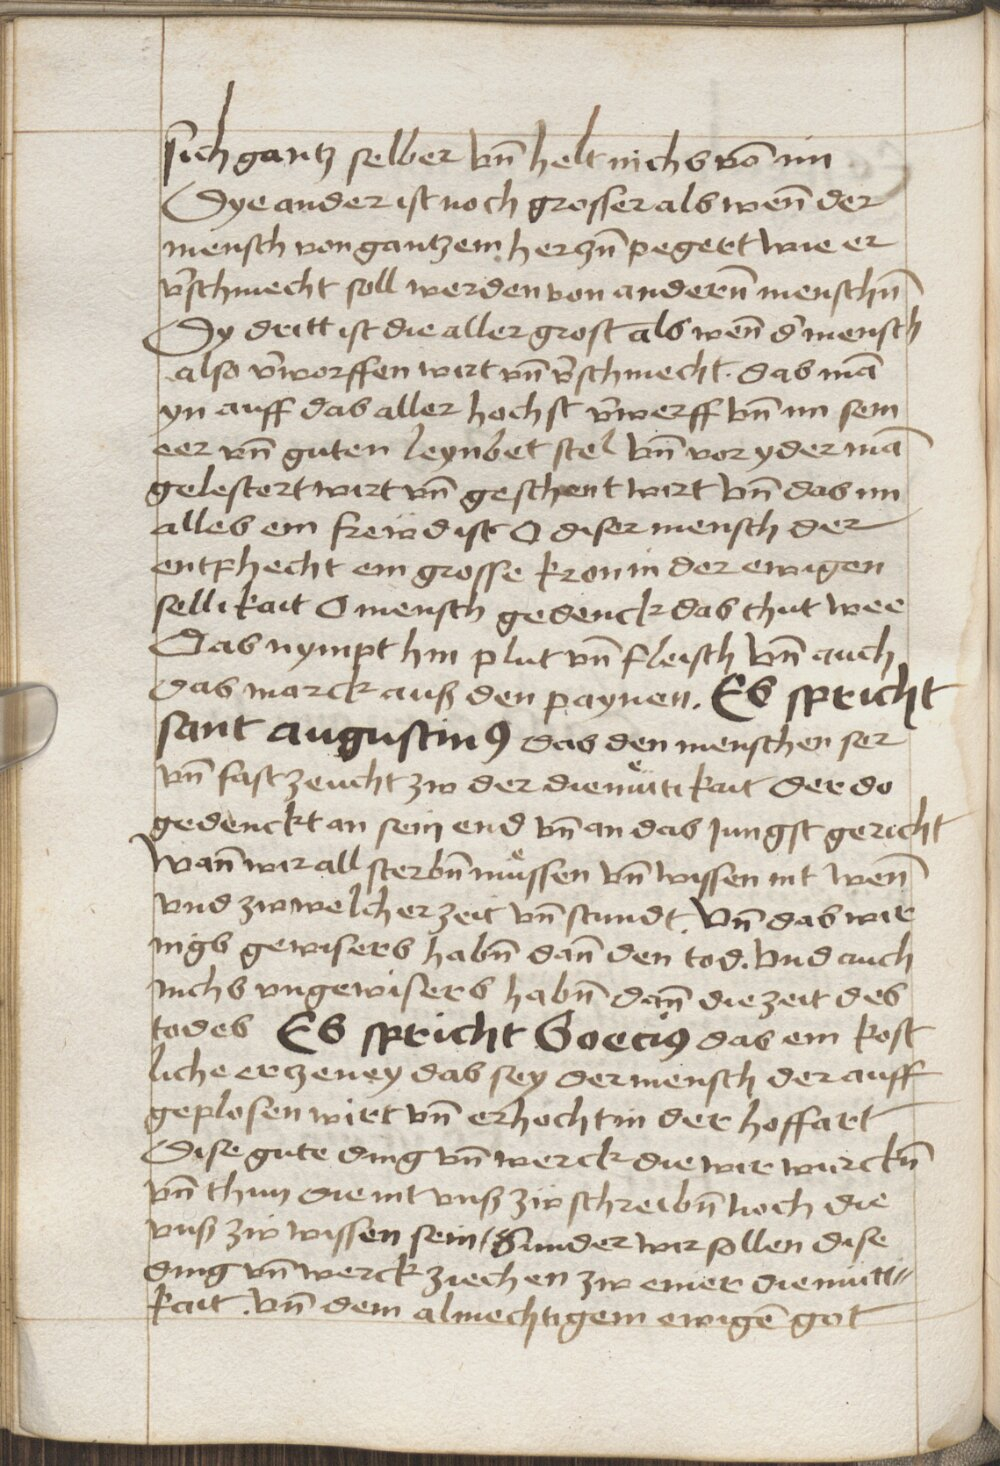 sich gantz selber vn̄ helt nichs vō im
Dye ander ist noch grosser als wen̄ der
mensch von gantzem herczn̄ pegert wie er
v̄schmecht soll werden von anderen̄ menschn̄
Dy dritt ist die aller grost als wen̄ d̄ mensch
also v̄worffen wirt vn̄ v̄schmecht. das mā
yn auff das aller hochst v̄werff vn̄ im sein
eer vn̄ guten leynbet stel vn̄ vor yder mā
gelestert wirt vn̄ geschent wirt vn̄ das im
alles ein frewd ist O diser mensch der
entphecht ein grosse kron in der ewigen
sellikait O mensch gedenck das thut wee
Das nympt hin plut vn̄ fleisch vn̄ auch
das marck auß den paynen. Es spricht
sant augustin9 das den menschen ser
vn̄ fast zeucht zw der diemuͤtikait der do
gedenckt an sein end vn̄ an das Jungst gericht
Wan̄ wir all sterbn̄ muͤssen vn̄ wissen nit wen̄
vnd zw welcher zeit vn̄ stundt. Vn̄ das wir
nigs gewisers habn̄ dan̄ den tod. Vnd auch
nichs vngewisers habn̄ dan̄ die zeit des
todes Es spricht Boeci9 das ein kost
liche erczeney das sey der mensch der auff
geplosen wirt vn̄ erhocht in der hoffart
Dise gute ding vn̄ werck die wir wurckn̄
vn̄ thun die nit vnß zw schreibn̄ noch die
vnß zw wissen sein / Sunder wir sollen dise
ding vn̄ werck ziechen zw einer diemuti⸗
kait. Vn̄ dem almechtigem ewigē got